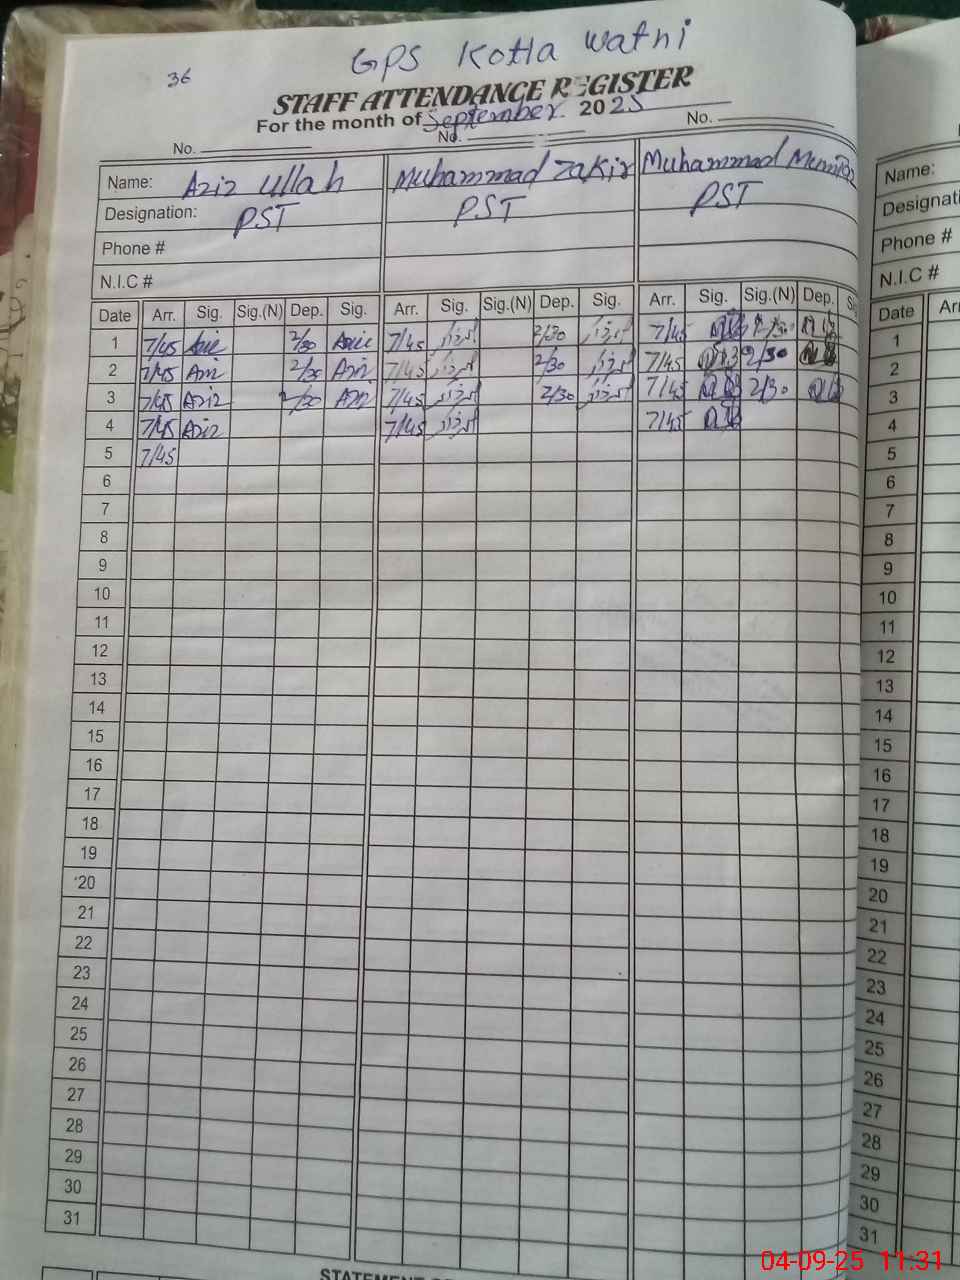 GPS Kotla Watni
36
STAFF ATTENDANCE REGISTER
For the month of September 2025
No. No. No.
Name: Aziz Ullah Muhammad Zakir Muhammad Name:
Designation: PST PST PST Designati
Phone # Phone #
N.I.C # N.I.C #
Date Arr. Sig. Sig.(N) Dep. Sig. Arr. Sig. Sig.(N) Dep. Sig. Arr. Sig. Sig.(N) Dep. Si Date Ar
1 7/45 Aziz 2/30 Aziz 7/45 2/30 7/45 2/30 1
2 7/45 Aziz 2/30 Aziz 7/45 2/30 7/45 2/30 2
3 7/45 Aziz 2/30 Aziz 7/45 2/30 7/45 2/30 3
4 7/45 Aziz 7/45 7/45 4
5 7/45 5
6 6
7 7
8 8
9 9
10 10
11 11
12 12
13 13
14 14
15 15
16 16
17 17
18 18
19 19
20 20
21 21
22 22
23 23
24 24
25 25
26 26
27 27
28 28
29 29
30 30
31 31
04-09-25 11:31